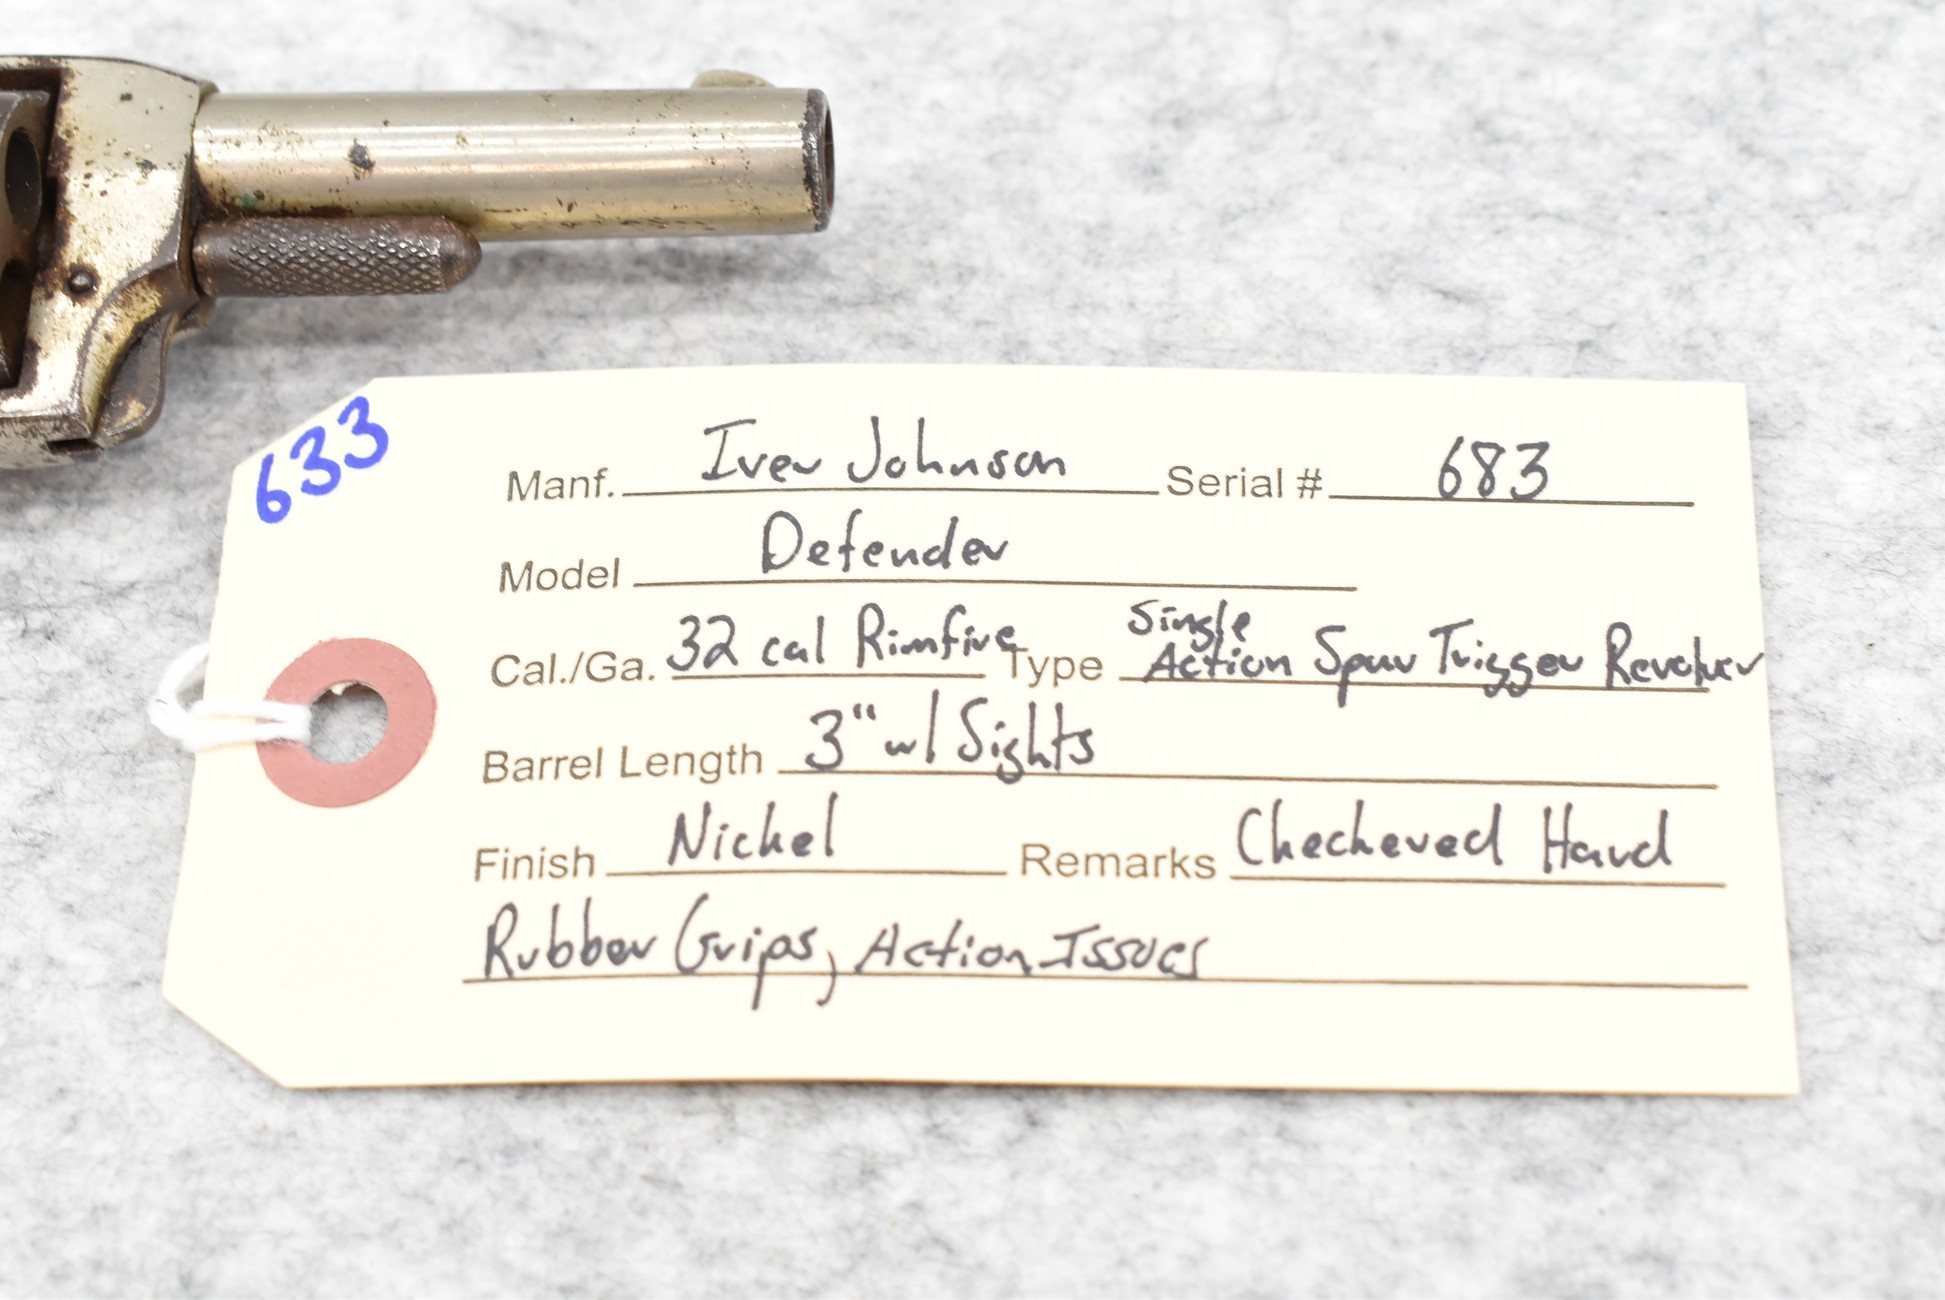 633
Manf. Iver Johnson Serial # 683
Model Defender
Cal./Ga. 32 cal Rimfire Type Single Action Spur Trigger Revolver
Barrel Length 3" w/ Sights
Finish Nickel Remarks Checkered Hard
Rubber Grips, Action Issues